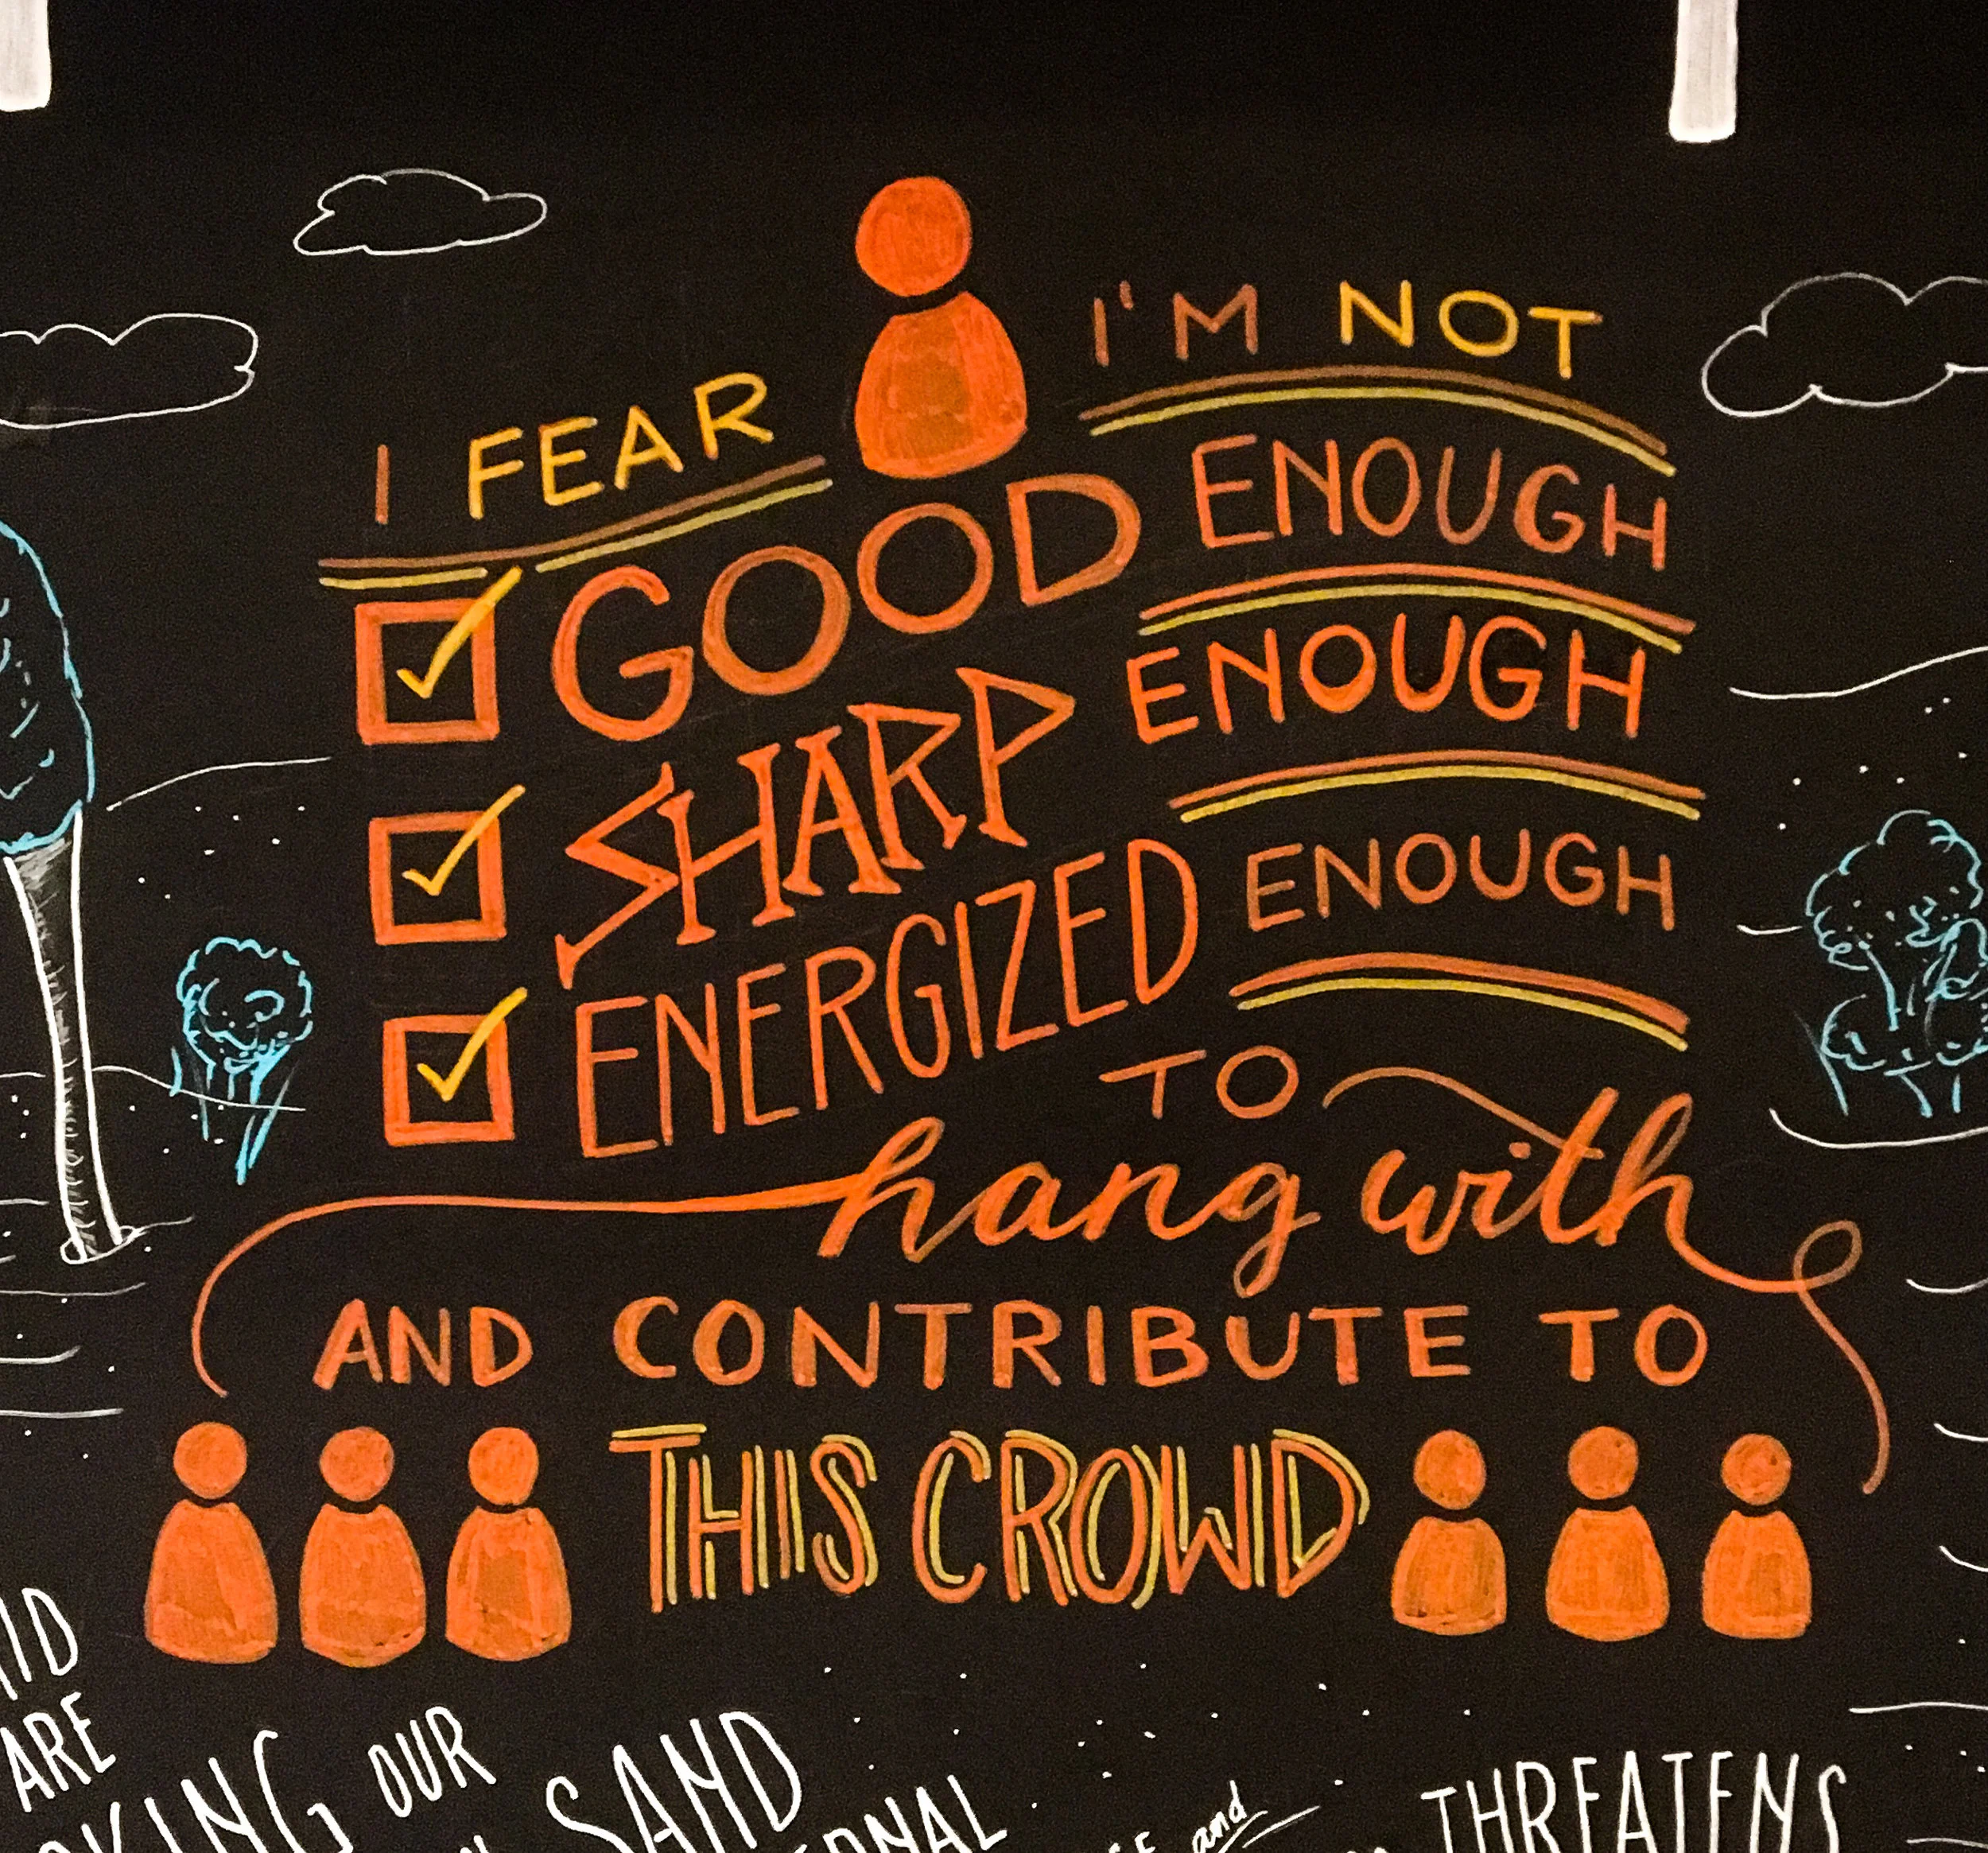 I FEAR I'M NOT
GOOD ENOUGH
SHARP ENOUGH
ENERGIZED ENOUGH
TO
hang with
AND CONTRIBUTE TO
THIS CROWD
ARE
OUR
SAND
and
THREATENS